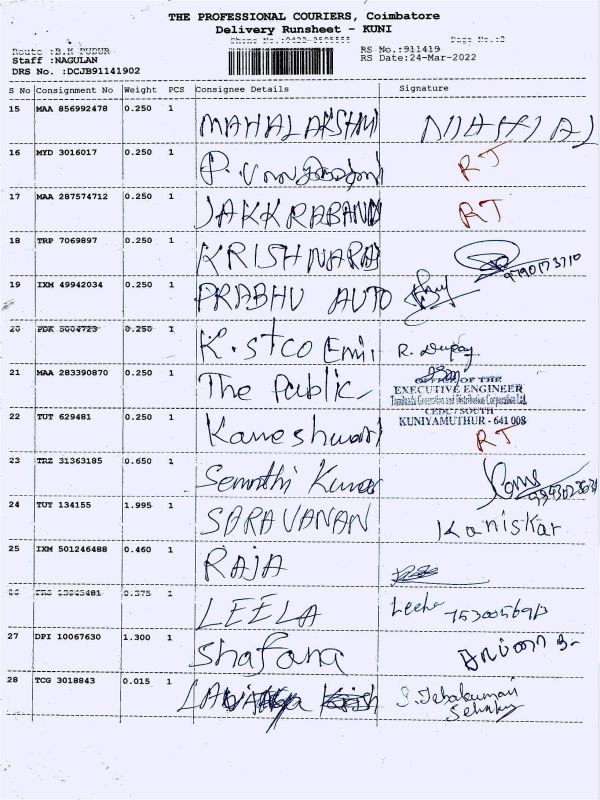 THE PROFESSIONAL COURIERS, Coimbatore
Delivery Runsheet - KUNI
Page No.:2
Route :B.K PUDUR
Staff :NAGULAN
DRS No. :DCJB91141902
RS No.:911419
RS Date:24-Mar-2022
S No Consignment No Weight PCS Consignee Details Signature
15 MAA 856992478 0.250 1 MAHALAKSHMI
16 MYD 3016017 0.250 1 P. RT
17 MAA 287574712 0.250 1 JAKKRABANI RT
18 TRP 7069897 0.250 1 KRISHNARAJ 9790173710
19 IXM 49942034 0.250 1 PRABHU AUTO
20 PDK 5004723 0.250 1 K. STCO Emi, R.
21 MAA 283390870 0.250 1 The Public
OFFICE OF THE
EXECUTIVE ENGINEER
Tamilnadu Generation and Distribution Corporation Ltd.
CEDC / SOUTH
KUNIYAMUTHUR - 641 008
22 TUT 629481 0.250 1 Kameshwari RT
23 TRZ 31363185 0.650 1 Senthil Kumar
24 TUT 134155 1.995 1 SARAVANAN Kaniskar
25 IXM 501246488 0.460 1 RAJA
0.375 1 LEELA Leela
27 DPI 10067630 1.300 1 Shafana
28 TCG 3018843 0.015 1 S. Jebakumari